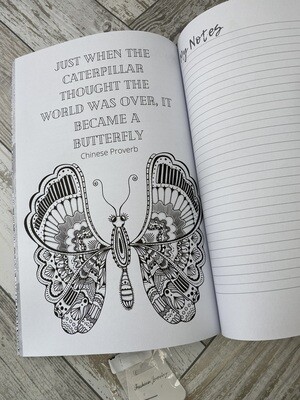 JUST WHEN THE
CATERPILLAR
THOUGHT THE
WORLD WAS OVER, IT
BECAME A
BUTTERFLY
Chinese Proverb
y Notes